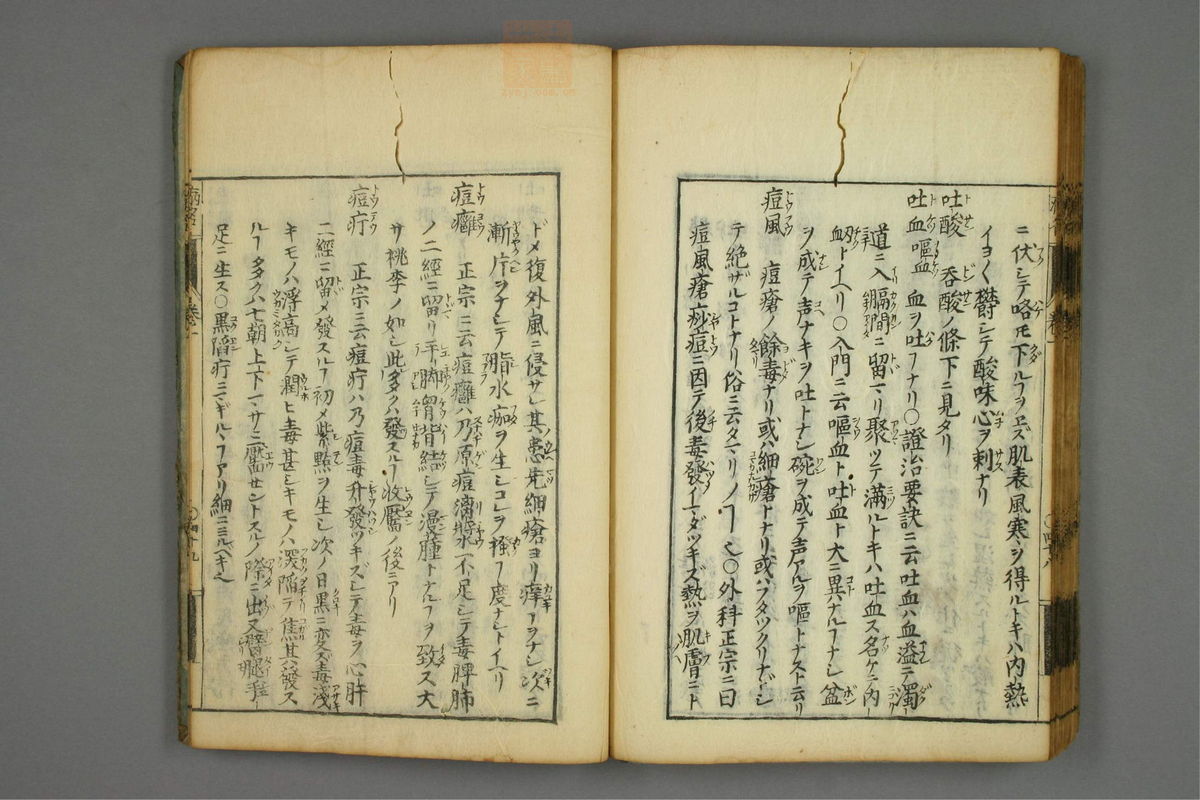 ニ伏シテ咯モ下ルヿヲヱズ肌表風寒ヲ得ルトキハ内熱
イヨ〱欝シテ酸味心ヲ刺ナリ
吐酸 呑酸ノ條下ニ見タリ
吐血嘔血 血ヲ吐フナリ○證治要訣ニ云吐血ハ血溢テ濁
道ニ入膈間ニ留マリ聚ツテ満ルトキハ吐血ス名ケテ内
衂トイヘリ○入門ニ云嘔血ト吐血ト大ニ異ナルヿナシ盆
ヲ成テ声ナキヲ吐トナシ碗ヲ成テ声アルヲ嘔トナスト云リ
痘風 痘瘡ノ餘毒ナリ或ハ細瘡トナリ或ハフタツクリナドシ
テ絶ザルコトナリ俗ニ云タマリノヿ也○外科正宗ニ曰
痘風瘡痧痘ニ因テ後毒發イマダツキズ熱ヲ肌膚ニト
ドメ復外風ニ侵サレ其患先細瘡ヨリ痒ヿヲナシ次ニ
漸片ヲナシテ脂水痂ヲ生シコレヲ搔ヿ度ナシトイヘリ
痘癰 正宗ニ云痘癰ハ乃原痘漓漿不足シテ毒脾肺
ノ二經ニ留リ手脚胃背結シテ漫腫トナルヿヲ致ス大
サ桃李ノ如シ此多クハ發スルヿ收靨ノ後ニアリ
痘疔 正宗ニ云痘疔ハ乃痘毒升發ツキズシテ毒ヲ心肝
二經ニ留メ發スルヿ初メ紫點ヲ生シ次ノ日黒ニ変ズ毒淺
キモノハ浮高シテ潤ヒ毒甚シキモノハ深陥テ焦其ハ發ス
ルヿ多クハ七朝上下ニマサニ靨セントスルノ際ニ出又臂腿手
足ニ生ス○黒陥疔ニマギルヽヿアリ細ニミルベキ也